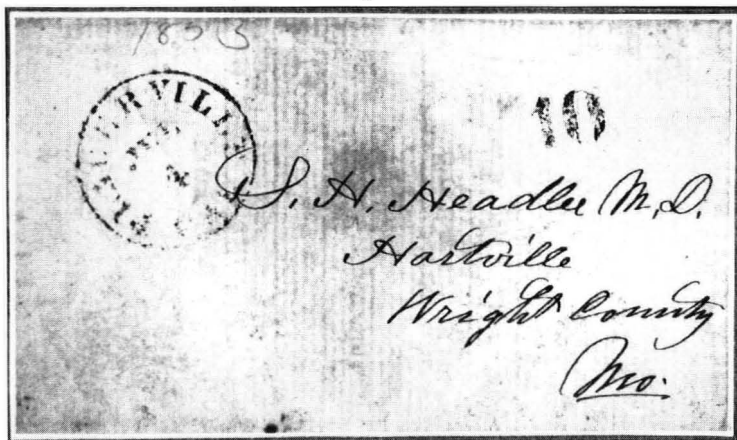 1853
PLACERVILLE
10
S. H. Headlee M.D.
Hartville
Wright County
Mo.